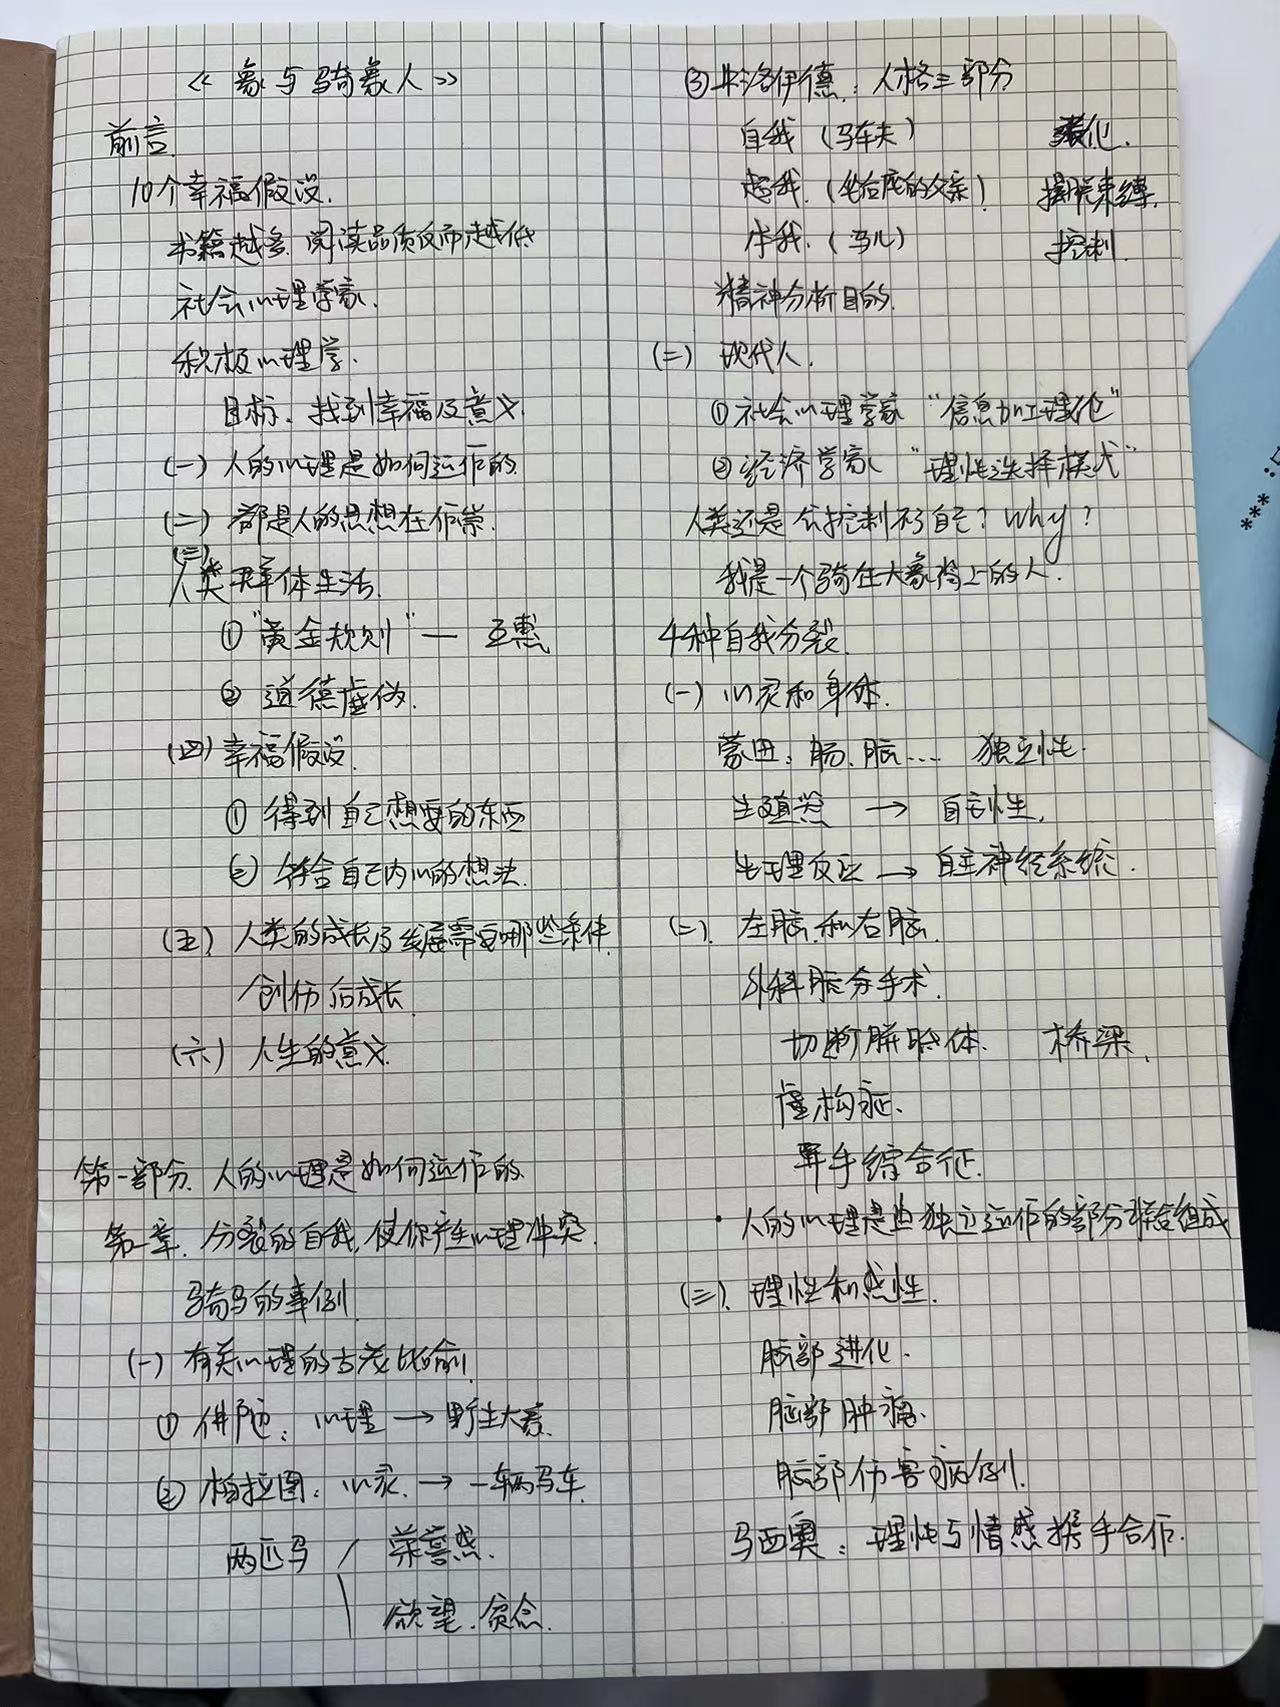 《象与骑象人》
前言.
10个幸福假设.
书籍越多.阅读品质反而越低
社会心理学家.
积极心理学.
目标.找到幸福及意义.
(一) 人的心理是如何运作的.
(二) 都是人的思想在作祟.
(三)
人类群体生活.
① "黄金规则" — 互惠
② 道德虚伪.
(四) 幸福假设.
① 得到自己想要的东西
② 符合自己内心的想法.
(五) 人类的成长及发展需要哪些条件.
创伤后成长.
(六) 人生的意义.
第一部分.人的心理是如何运作的.
第一章.分裂的自我,使你产生心理冲突.
骑马的事例.
(一) 有关心理的古老比喻.
① 佛陀: 心理 → 野生大象.
② 柏拉图: 心灵. → 一辆马车.
两匹马 荣誉感.
欲望.贪念.
③ 弗洛伊德: 人格三部分
自我 (马车夫) 强化.
超我. (坐后座的父亲) 摆脱束缚.
本我. (马儿) 控制.
精神分析目的.
(二) 现代人.
① 社会心理学家 "信息加工理论"
② 经济学家 "理性选择模式"
人类还是会控制不了自己? Why?
我是一个骑在大象背上的人.
4种自我分裂.
(一) 心灵和身体.
蒙田: 肠.脑.... 独立性.
生殖器 → 自主性.
生理反应 → 自主神经系统.
(二). 左脑.和右脑.
外科脑分手术.
切断胼胝体. 桥梁.
虚构症.
异手综合征.
· 人的心理是由独立运作的部分联合组成
(三). 理性和感性.
脑部进化.
脑部肿瘤.
脑部伤害病例.
马西奥: 理性与情感携手合作.